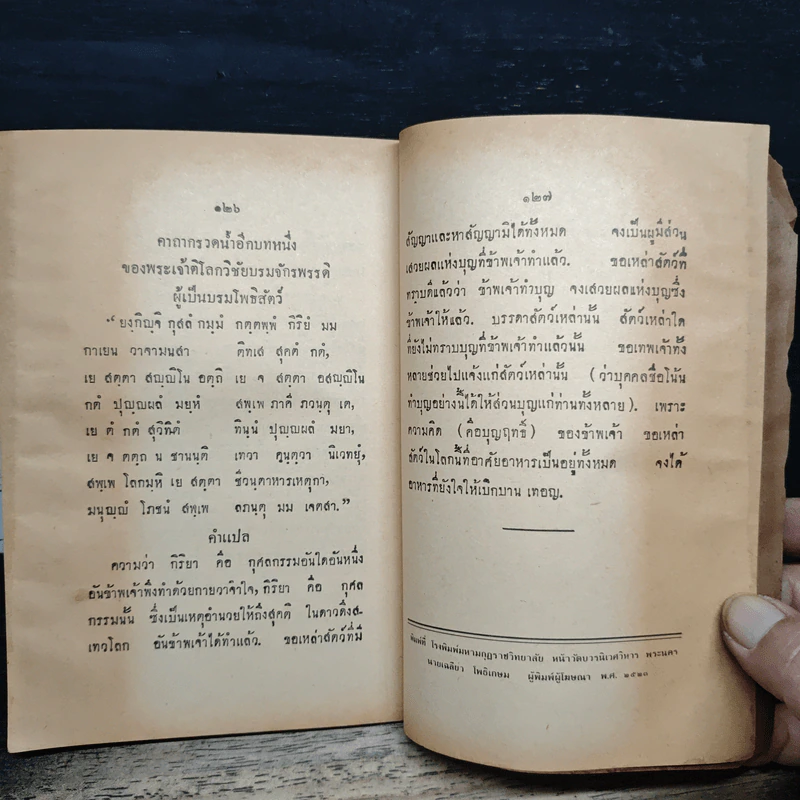 ๑๒๖
คาถากรวดน้ำอีกบทหนึ่ง
ของพระเจ้าติโลกวิชัยบรมจักรพรรดิ
ผู้เป็นบรมโพธิสัตว์
“ยงฺกิญฺจิ กุสลํ กมฺมํ กตฺตพฺพํ กิริยํ มม
กาเยน วาจามนสา ติทเส สุคตํ กตํ,
เย สตฺตา สญฺญิโน อตฺถิ เย จ สตฺตา อสญฺญิโน
กตํ ปุญฺญผลํ มยฺหํ สพฺเพ ภาคี ภวนฺตุ เต,
เย ตํ กตํ สุวิทิตํ ทินฺนํ ปุญฺญผลํ มยา,
เย จ ตตฺถ น ชานนฺติ เทวา คนฺตฺวา นิเวทยุํ,
สพฺเพ โลกมฺหิ เย สตฺตา ชีวนฺตาหารเหตุกา,
มนุญฺญํ โภชนํ สพฺเพ ลภนฺตุ มม เจตสา.”
คำแปล
ความว่า กิริยา คือ กุศลกรรมอันใดอันหนึ่ง
อันข้าพเจ้าพึงทำด้วยกายวาจาใจ, กิริยา คือ กุศล
กรรมนั้น ซึ่งเป็นเหตุอำนวยให้ถึงสุคติ ในดาวดึงส-
เทวโลก อันข้าพเจ้าได้ทำแล้ว. ขอเหล่าสัตว์ที่มี
๑๒๗
สัญญาและหาสัญญามิได้ทั้งหมด จงเป็นผู้มีส่วน
เสวยผลแห่งบุญที่ข้าพเจ้าทำแล้ว. ขอเหล่าสัตว์ที่
ทราบดีแล้วว่า ข้าพเจ้าทำบุญ จงเสวยผลแห่งบุญซึ่ง
ข้าพเจ้าให้แล้ว. บรรดาสัตว์เหล่านั้น สัตว์เหล่าใด
ที่ยังไม่ทราบบุญที่ข้าพเจ้าทำแล้วนั้น ขอเทพเจ้าทั้ง
หลายช่วยไปแจ้งแก่สัตว์เหล่านั้น (ว่าบุคคลชื่อโน้น
ทำบุญอย่างนี้ได้ให้ส่วนบุญแก่ท่านทั้งหลาย). เพราะ
ความคิด (คือบุญฤทธิ์) ของข้าพเจ้า ขอเหล่า
สัตว์ในโลกนี้ที่อาศัยอาหารเป็นอยู่ทั้งหมด จงได้
อาหารที่ยังใจให้เบิกบาน เทอญ.
พิมพ์ที่ โรงพิมพ์มหามกุฏราชวิทยาลัย หน้าวัดบวรนิเวศวิหาร พระนคร
นายเฉลียว โพธิเกษม ผู้พิมพ์ผู้โฆษณา พ.ศ. ๒๕๒๓